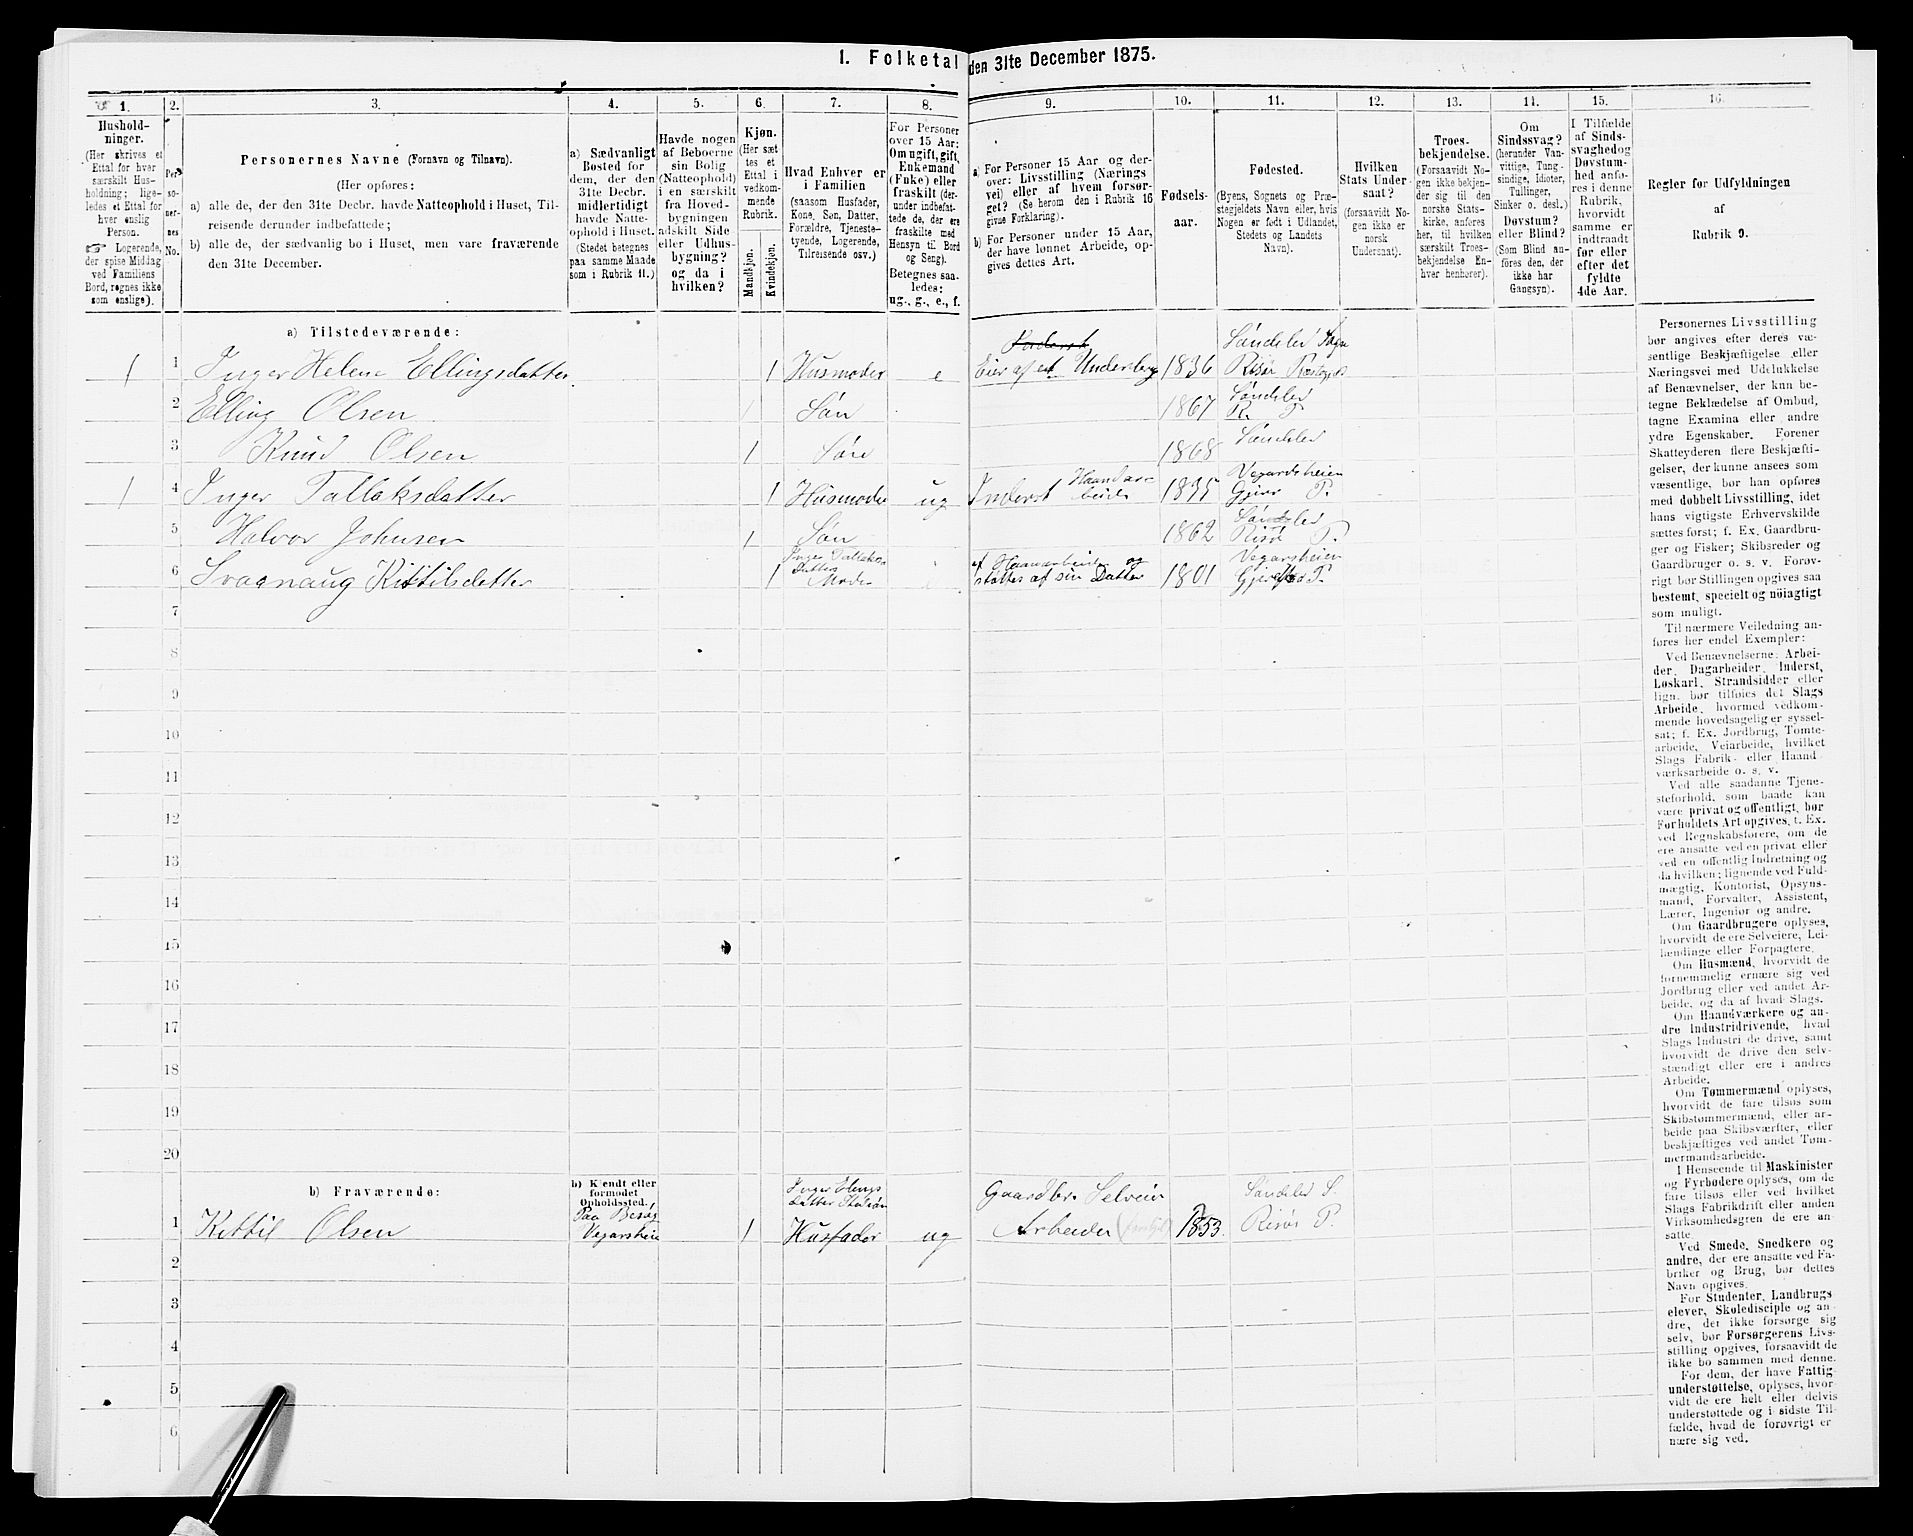 1. Folketal den 31te December 1875.
1.
Hushold-
ninger.
(Her skrives et
Ettal for hver
særskilt Hus-
holdning; lige-
ledes et Ettal for
hver enslig
Person.
☞ Logerende,
der spise Middag
ved Familiens
Bord, regnes ikke
som enslige).
2.
Per-
so-
ner-
nes
No.
3.
Personernes Navne (Fornavn og Tilnavn).
(Her opføres:
a) alle de, der den 31te Decbr. havde Natteophold i Huset, Til-
reisende derunder indbefattede;
b) alle de, der sædvanlig bo i Huset, men vare fraværende
den 31te December.
4.
a) Sædvanligt
Bosted for
dem, der den
31te Decbr.
midlertidigt
havde Natte-
ophold i Huset.
(Stedet betegnes
paa samme Maade
som i Rubrik 11.)
5.
Havde nogen
af Beboerne
sin Bolig
(Natteophold)
i en særskilt
fra Hoved-
bygningen
adskilt Side-
eller Udhus-
bygning?
og da i
hvilken?
6.
Kjøn.
(Her sæt-
tes et
Ettal i
vedkom-
mende
Rubrik.
Mandkjøn.
Kvindekjøn.
7.
Hvad Enhver er
i Familien
(saasom Husfader,
Kone, Søn, Datter,
Forældre, Tjeneste-
tyende, Logerende,
Tilreisende osv.)
8.
For Personer
over 15 Aar:
Om ugift, gift,
Enkemand
(Enke) eller
fraskilt (der-
under indbefat-
tede de, der ere
fraskilte med
Hensyn til Bord
og Seng).
Betegnes saa-
ledes:
ug., g., e., f.
9.
a) For Personer 15 Aar og der-
over: Livsstilling (Nærings-
vei) eller af hvem forsør-
get? (Se herom den i Rubrik 16
givne Forklaring).
b) For Personer under 15 Aar,
der have lønnet Arbeide, op-
gives dettes Art.
10.
Fødsels-
aar.
11.
Fødested.
(Byens, Sognets og Præ-
stegjeldets Navn eller, hvis
Nogen er født i Udlandet,
Stedets og Landets
Navn).
12.
Hvilken
Stats Under-
saat?
(forsaavidt No-
gen ikke er
norsk
Undersaat).
13.
Troes-
bekjendelse.
(Forsaavidt No-
gen ikke bekjen-
der sig til den
norske Stats-
kirke, anføres
her, til hvilken
særskilt Troes-
bekjendelse En-
hver henhører).
14.
Om
Sindssvag?
(herunder Van-
vittige, Tung-
sindige, Idioter,
Tullinger,
Sinker o. desl.).
Døvstum?
eller Blind?
(Som Blind an-
føres den, der
ikke har
Gangsyn).
15.
I Tilfælde
af Sinds-
svaghed og
Døvstum-
hed anfø-
res i denne
Rubrik,
hvorvidt
samme er
indtraadt
før eller
efter det
fyldte
4de Aar.
16.
Regler for Udfyldningen
af
Rubrik 9.
a) Tilstedeværende:
1 1 Inger Helene Ellingsdatter 1 Husmoder e Eier af et Underbrug 1836 Søndeler Sogn
Risør Præstegjeld
2 Elling Olsen 1 Søn 1867 Søndeler
R. P.
3 Knud Olsen 1 Søn 1868 Søndeler
1 4 Inger Tallaksdatter 1 Husmoder ug Inderst Haandarbeide 1835 Vegardsheien
Gjerr P.
5 Halvor Johnsen 1 Søn 1862 Søndeler
Risør P.
6 Svagnaug Kittilsdatter 1 Inger Tallaks
Datters
Moder e af Haanarbeide og
støttes af sin Datter 1801 Vegarsheien
Gjerestad P.
7
8
9
10
11
12
13
14
15
16
17
18
19
20
b) Fraværende:
b) Kjendt eller
formodet
Opholdssted.
1 Kittil Olsen Paa Besøg
Vegarsheie 1 Inger Elings
datter Stedsøn
Husfader ug Gaardbr. Selveier
Arbeider 1853 Søndeler S.
Risør P.
2
3
4
5
6
Personernes Livsstilling
bør angives efter deres væ-
sentlige Beskjæftigelse eller
Næringsvei med Udelukkelse
af Benævnelser, der kun be-
tegne Beklædelse af Ombud,
tagne Examina eller andre
ydre Egenskaber. Forener
Skatteyderen flere Beskjæfti-
gelser, der kunne ansees som
væsentlige, bør han opføres
med dobbelt Livsstilling, idet
hans vigtigste Erhvervskilde
sættes først; f. Ex. Gaardbru-
ger og Fisker; Skibsreder og
Gaardbruger o. s. v. Forøv-
rigt bør Stillingen opgives saa
bestemt, specielt og nøiagtigt
som muligt.
Til nærmere Veiledning an-
føres her endel Exempler:
Ved Benævnelserne: Arbei-
der, Dagarbeider, Inderst,
Løskarl, Strandsidder eller
lign. bør tilføies det Slags
Arbeide, hvormed vedkom-
mende hovedsagelig er syssel-
sat; f. Ex. Jordbrug, Tomte-
arbeide, Veiarbeide, hvilket
Slags Fabrik- eller Haand-
værksarbeide o. s. v.
Ved alle saadanne Tjene-
steforhold, som baade kan
være privat og offentligt, bør
Forholdets Art opgives, t. Ex.
ved Regnskabsførere, om de
ere ansatte ved en privat eller
ved en offentlig Indretning og
da hvilken; lignende ved Fuld-
mægtig, Kontorist, Opsyns-
mand, Forvalter, Assistent,
Lærer, Ingeniør og andre.
Om Gaardbrugere oplyses,
hvorvidt de ere Selveiere, Lei-
lændinge eller Forpagtere.
Om Husmænd, hvorvidt de
fornemmelig ernære sig ved
Jordbrug eller ved andet Ar-
beide, og da af hvad Slags.
Om Haandværkere og an-
dre Industridrivende, hvad
Slags Industri de drive, samt
hvorvidt de drive den selv-
stændigt eller ere i andres
Arbeide.
Om Tømmermænd oplyses,
hvorvidt de fare tilsøs som
Skibstømmermænd, eller ar-
beide paa Skibsværfter, eller
beskjæftiges ved andet Tøm-
mermandsarbeide.
I Henseende til Maskinister
og Fyrbødere oplyses, om de
fare tilsøs eller ved hvilket
Slags Fabrikdrift eller anden
Virksomhedsgren de ere an-
satte.
Ved Smede, Snedkere og
andre, der ere ansatte ved Fa-
briker og Brug, bør dettes
Navn opgives.
For Studenter, Landbrugs-
elever, Skoledisciple og an-
dre, der ikke forsørge sig
selv, bør Forsørgerens Livs-
stilling opgives, forsaavidt de
ikke bo sammen med denne.
For dem, der have Fattig-
understøttelse, oplyses, hvor-
vidt de ere helt eller delvis
understøttede og i sidste Til-
fælde, hvad de forøvrigt er-
nære sig ved.